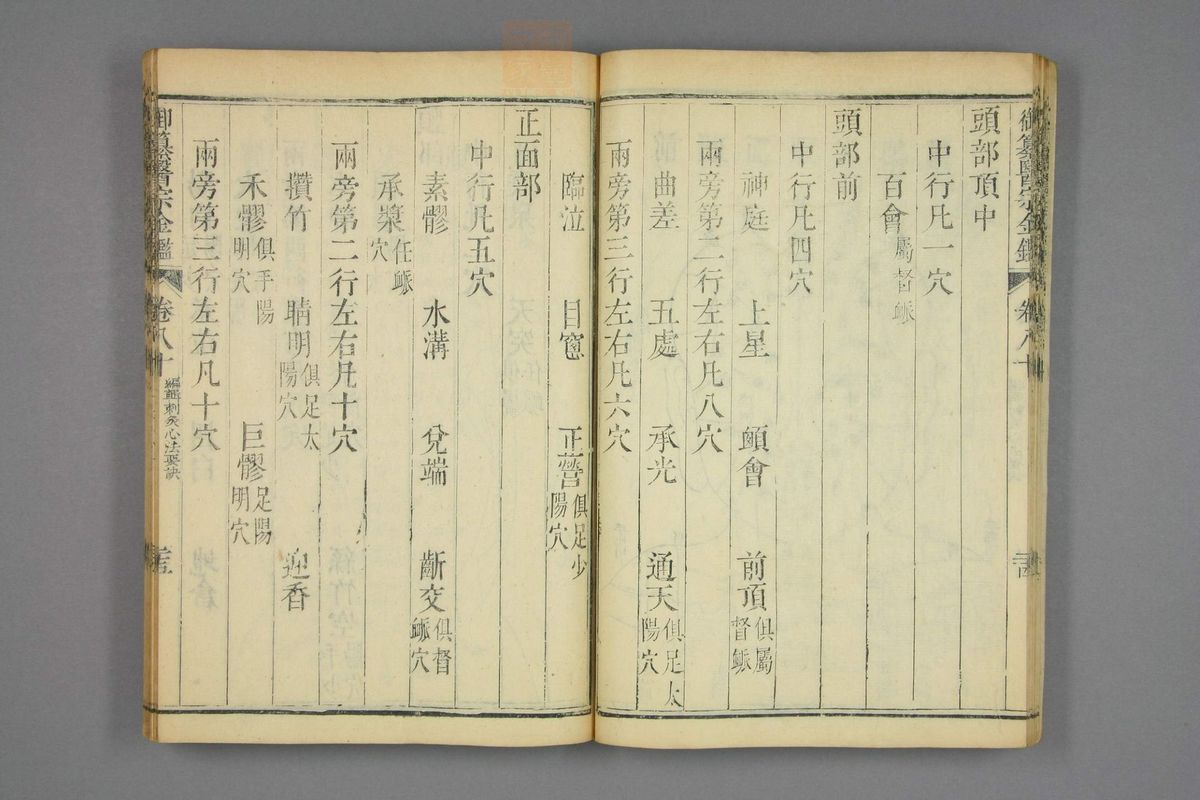 御纂醫宗金鑑 卷八十
頭部頂中
中行凡一穴
百會屬督脈
頭部前
中行凡四穴
神庭 上星 顖會 前頂俱屬督脈
兩旁第二行左右凡八穴
曲差 五處 承光 通天俱足太陽穴
兩旁第三行左右凡六穴
臨泣 目窻 正營俱足少陽穴
正面部
中行凡五穴
素髎 水溝 兌端 齗交俱督脈穴
承漿任脈穴
兩旁第二行左右凡十穴
攢竹 睛明俱足太陽穴 迎香
禾髎俱手陽明穴 巨髎足陽明穴
兩旁第三行左右凡十穴
御纂醫宗金鑑 卷八十 編輯刺灸心法要訣